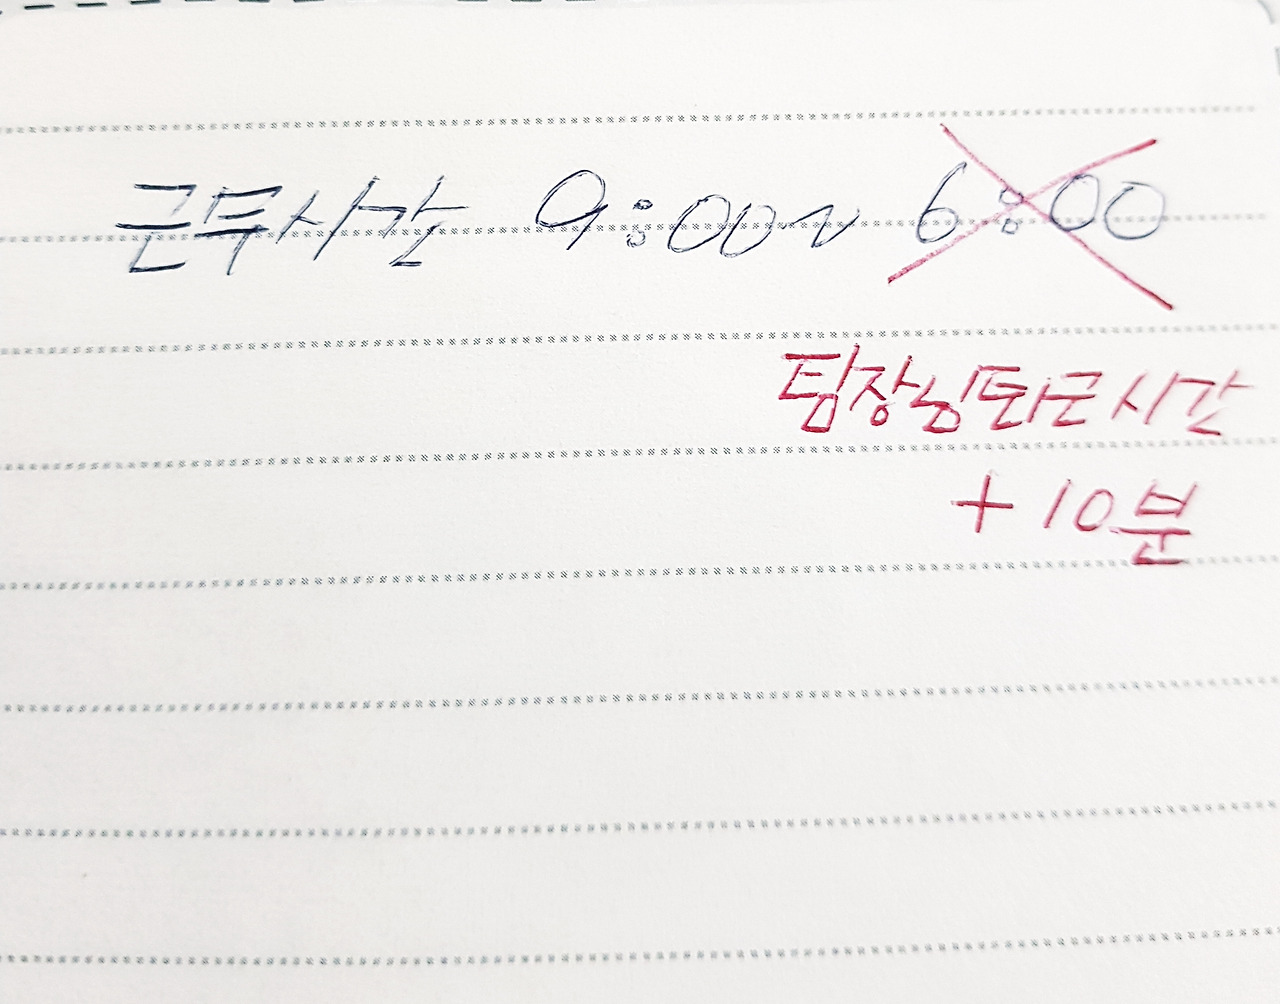 근무시간 9:00~ 6:00
팀장님퇴근시간
+ 10분